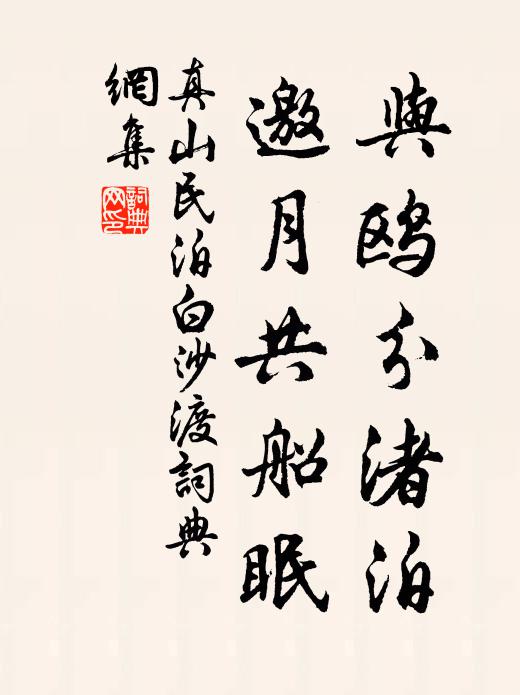 與鸥分渚泊
邀月共船眠
真山民泊白沙渡詞典
網集
詞典
网印